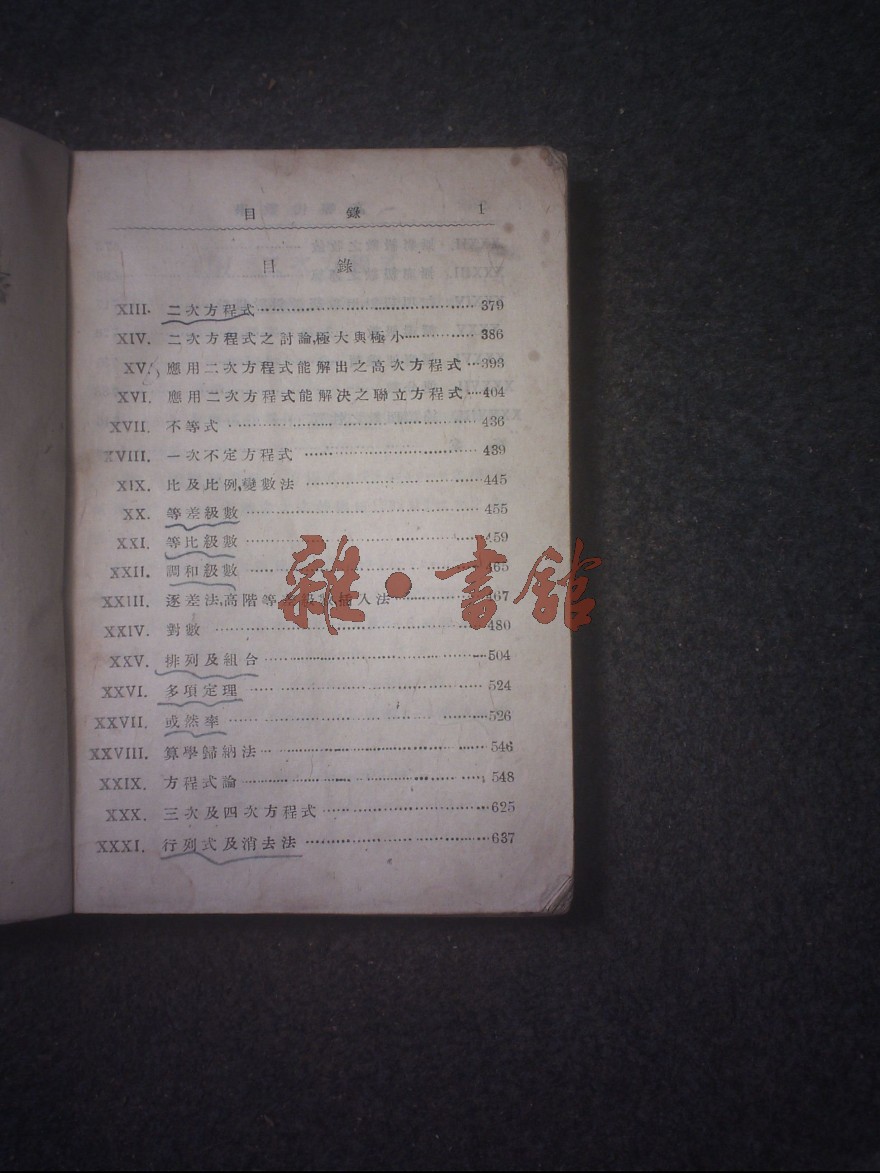 目錄 1
目錄
XIII. 二次方程式 379
XIV. 二次方程式之討論,極大與極小 386
XV. 應用二次方程式能解出之高次方程式 393
XVI. 應用二次方程式能解決之聯立方程式 404
XVII. 不等式 436
XVIII. 一次不定方程式 439
XIX. 比及比例,變數法 445
XX. 等差級數 455
XXI. 等比級數 459
XXII. 調和級數 465
XXIII. 逐差法,高階等差級數,插入法 467
XXIV. 對數 480
XXV. 排列及組合 504
XXVI. 多項定理 524
XXVII. 或然率 526
XXVIII. 算學歸納法 546
XXIX. 方程式論 548
XXX. 三次及四次方程式 625
XXXI. 行列式及消去法 637
雜·書館